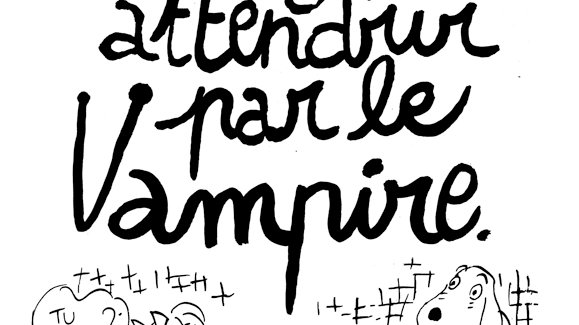 attendrir
par le
Vampire.
TU